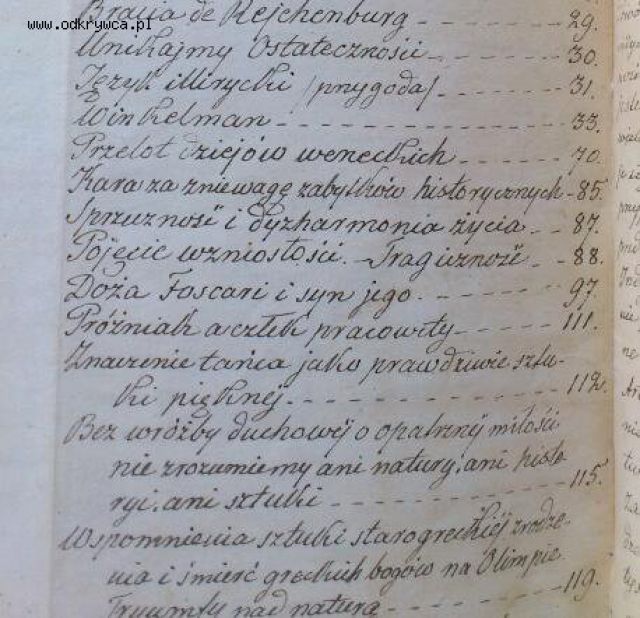 www.odkrywca.pl
Bracia de Rejchenburg - - - 29.
Unikajmy Ostateczności - - - 30.
Język illirycki /przygoda/ - - - 31.
Winkelman - - - 33.
Przelot dziejów weneckich - - - 70.
Kara za zniewagę zabytków historycznych - 85.
Sprzeczność i dyzharmonia życia - - 87.
Pojęcie wzniosłości. - Tragiczność - - 88.
Doża Foscari i syn jego - - - 97.
Próżniak a człek pracowity - - - 111.
Znaczenie tańca jako prawdziwie sztu-
ki pięknéj - - - 112.
Bez wróżby duchowéj o opatrznéj miłości
nie zrozumiemy ani natury, ani histo-
ryi, ani sztuki - - - 115.
Wspomnienia sztuki starogreckiéj zrodze-
nia i śmierć greckich bogów na Olimpie
119.
Tryumfy nad naturą - - -